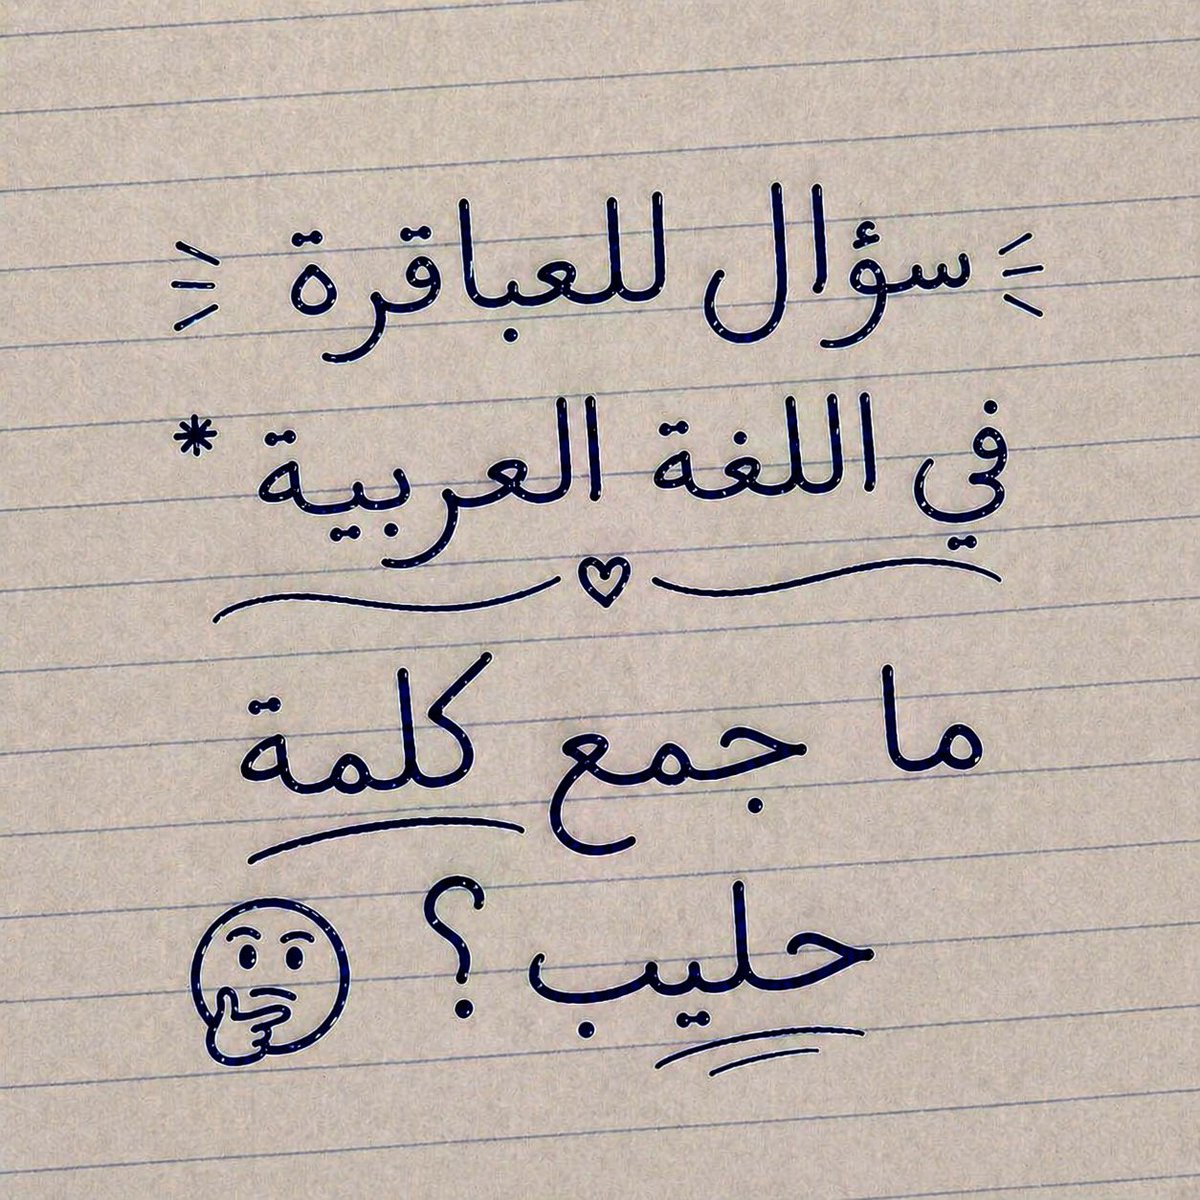 سؤال للعباقرة
في اللغة العربية *
ما جمع كلمة
حليب ؟